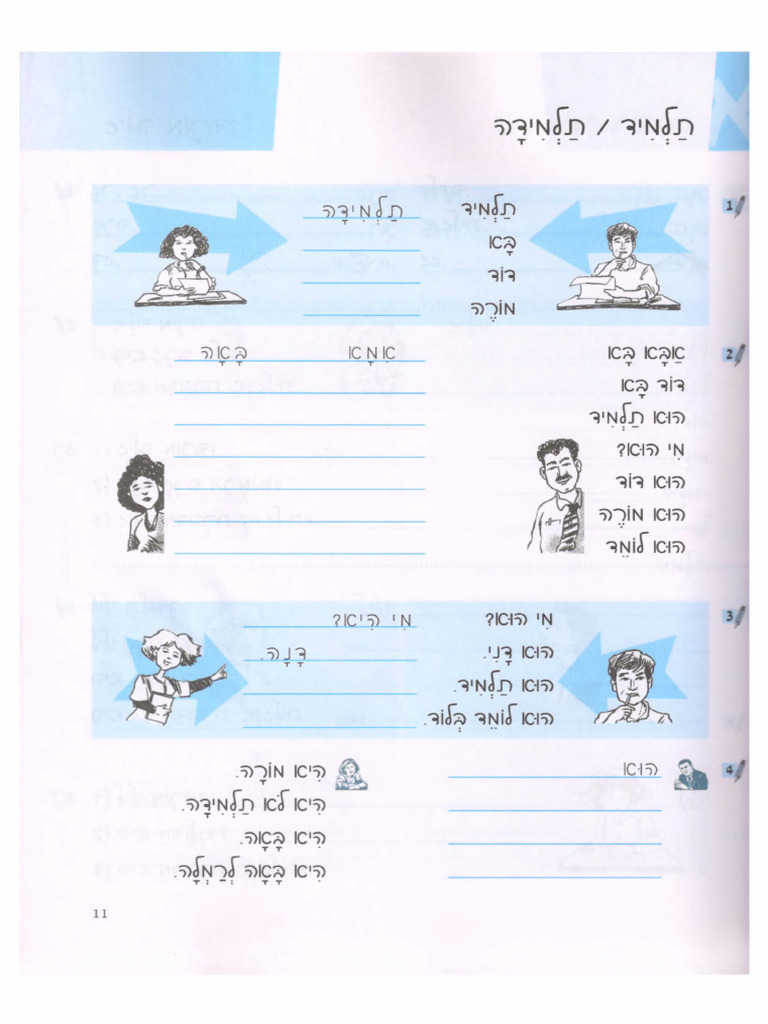 תַּלְמִיד / תַּלְמִידָה
1
תַּלְמִיד תַּלְמִידָה
בָּא
דּוֹד
מוֹרֶה
2
אַבָּא בָּא אִמָּא בָּאָה
דּוֹד בָּא
הוּא תַּלְמִיד
מִי הוּא?
הוּא דּוֹד
הוּא מוֹרֶה
הוּא לוֹמֵד
3
מִי הוּא? מִי הִיא?
הוּא דָּנִי. דָּנָה.
הוּא תַּלְמִיד.
הוּא לוֹמֵד בְּלוֹד.
4
הוּא הִיא מוֹרָה.
הִיא לֹא תַּלְמִידָה.
הִיא בָּאָה.
הִיא בָּאָה לְרַמְלָה.
11